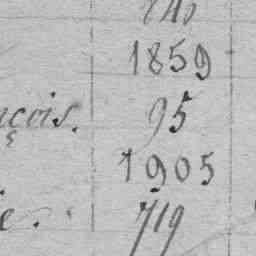 1859
çois. 95
1905
e. 719